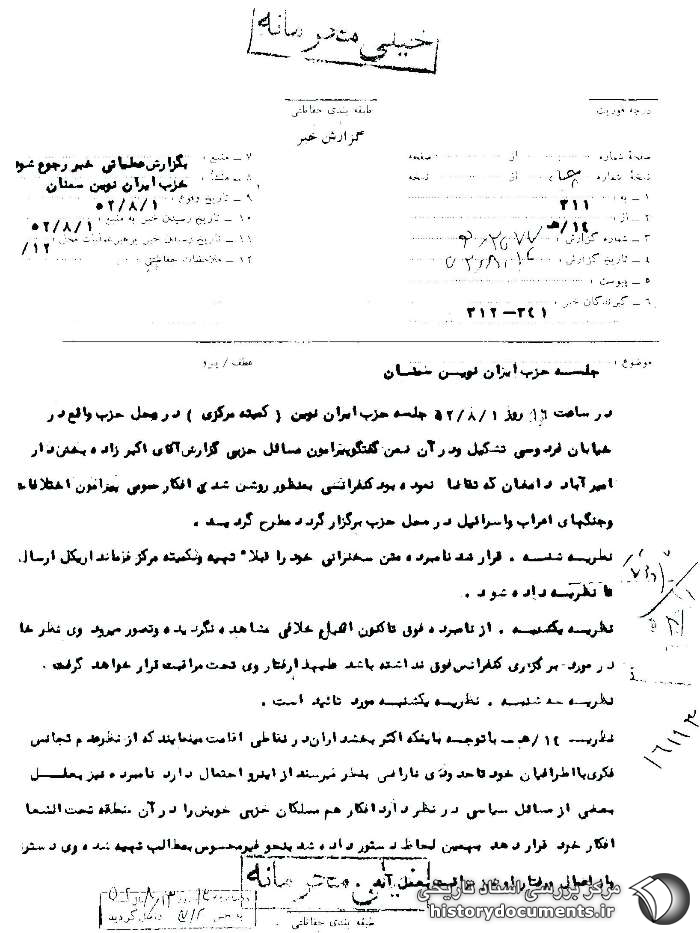 خیلی محرمانه
درجه فوریت
طبقه بندی حفاظتی
گزارش خبر
صفحه شماره از صفحه
نسخه شماره از نسخه
۱ ـ به : ۳۱۱
۲ ـ از : ۱۴/هـ
۳ ـ شماره گزارش :
۴ ـ تاریخ گزارش :
۵ ـ پیوست :
۶ ـ گیرندگان خبر : ۳۴۱ــ۳۱۲
۷ ـ منبع : بگزارش عملیاتی خبر رجوع شود
۸ ـ منشأ : حزب ایران نوین سمنان
۹ ـ تاریخ وقوع : ۵۲/۸/۱
۱۰ ـ تاریخ رسیدن خبر به منبع : ۵۲/۸/۱
۱۱ ـ تاریخ رسیدن خبر برهبر عملیات محل :
۱۲ ـ ملاحظات حفاظتی :
موضوع : جلسه حزب ایران نوین سمنان
عطف / پیرو
در ساعت ۱۶ روز ۵۲/۸/۱ جلسه حزب ایران نوین ( کمیته مرکزی ) در محل حزب واقع در
خیابان فردوسی تشکیل ودر آن ضمن گفتگو پیرامون مسائل حزبی گزارش آقای اکبر زاده بخش دار
امیر آباد دامغان که تقاضا نموده بود کنفرانسی بمنظور روشن شدن افکار عمومی پیرامون اختلافات
وجنگهای اعراب واسرائیل در محل حزب برگزار گردد مطرح گردید .
نظریه شنبه . قرار شد نامبرده متن سخنرانی خود را قبلا" تهیه وبکمیته مرکز فرمانداریکل ارسال
تا نظریه داده شود .
نظریه یکشنبه . از نامبرده فوق تاکنون اعمال خلافی مشاهده نگردیده وتصور میرود وی نظر خا
در مورد برگزاری کنفرانس فوق نداشته باشد علیهذا رفتار وی تحت مراقبت قرار خواهد گرفت .
نظریه سه شنبه . نظریه یکشنبه مورد تائید است .
نظریه ۱۴/هـ ـ با توجه باینکه اکثر بخشداران در نقاطی اقامت مینمایند که از نظر عدم تجانس
فکری با اطرافیان خود تا حدودی ناراضی بنظر میرسند از اینرو احتمال دارد نامبرده نیز بعلل
بعضی از مسائل سیاسی در نظر دارد افکار هم مسلکان حزبی خویش را در آن منطقه تحت الشعا
افکار خود قرار دهد بهمین لحاظ دستور داده شد بنحو غیر محسوس بمطالب تهیه شده وی دسترسی
واز اعمال ورفتار او نیز مراقبت بعمل آید .
خیلی محرمانه
طبقه بندی حفاظتی
مرکز بررسی اسناد تاریخی
historydocuments.ir